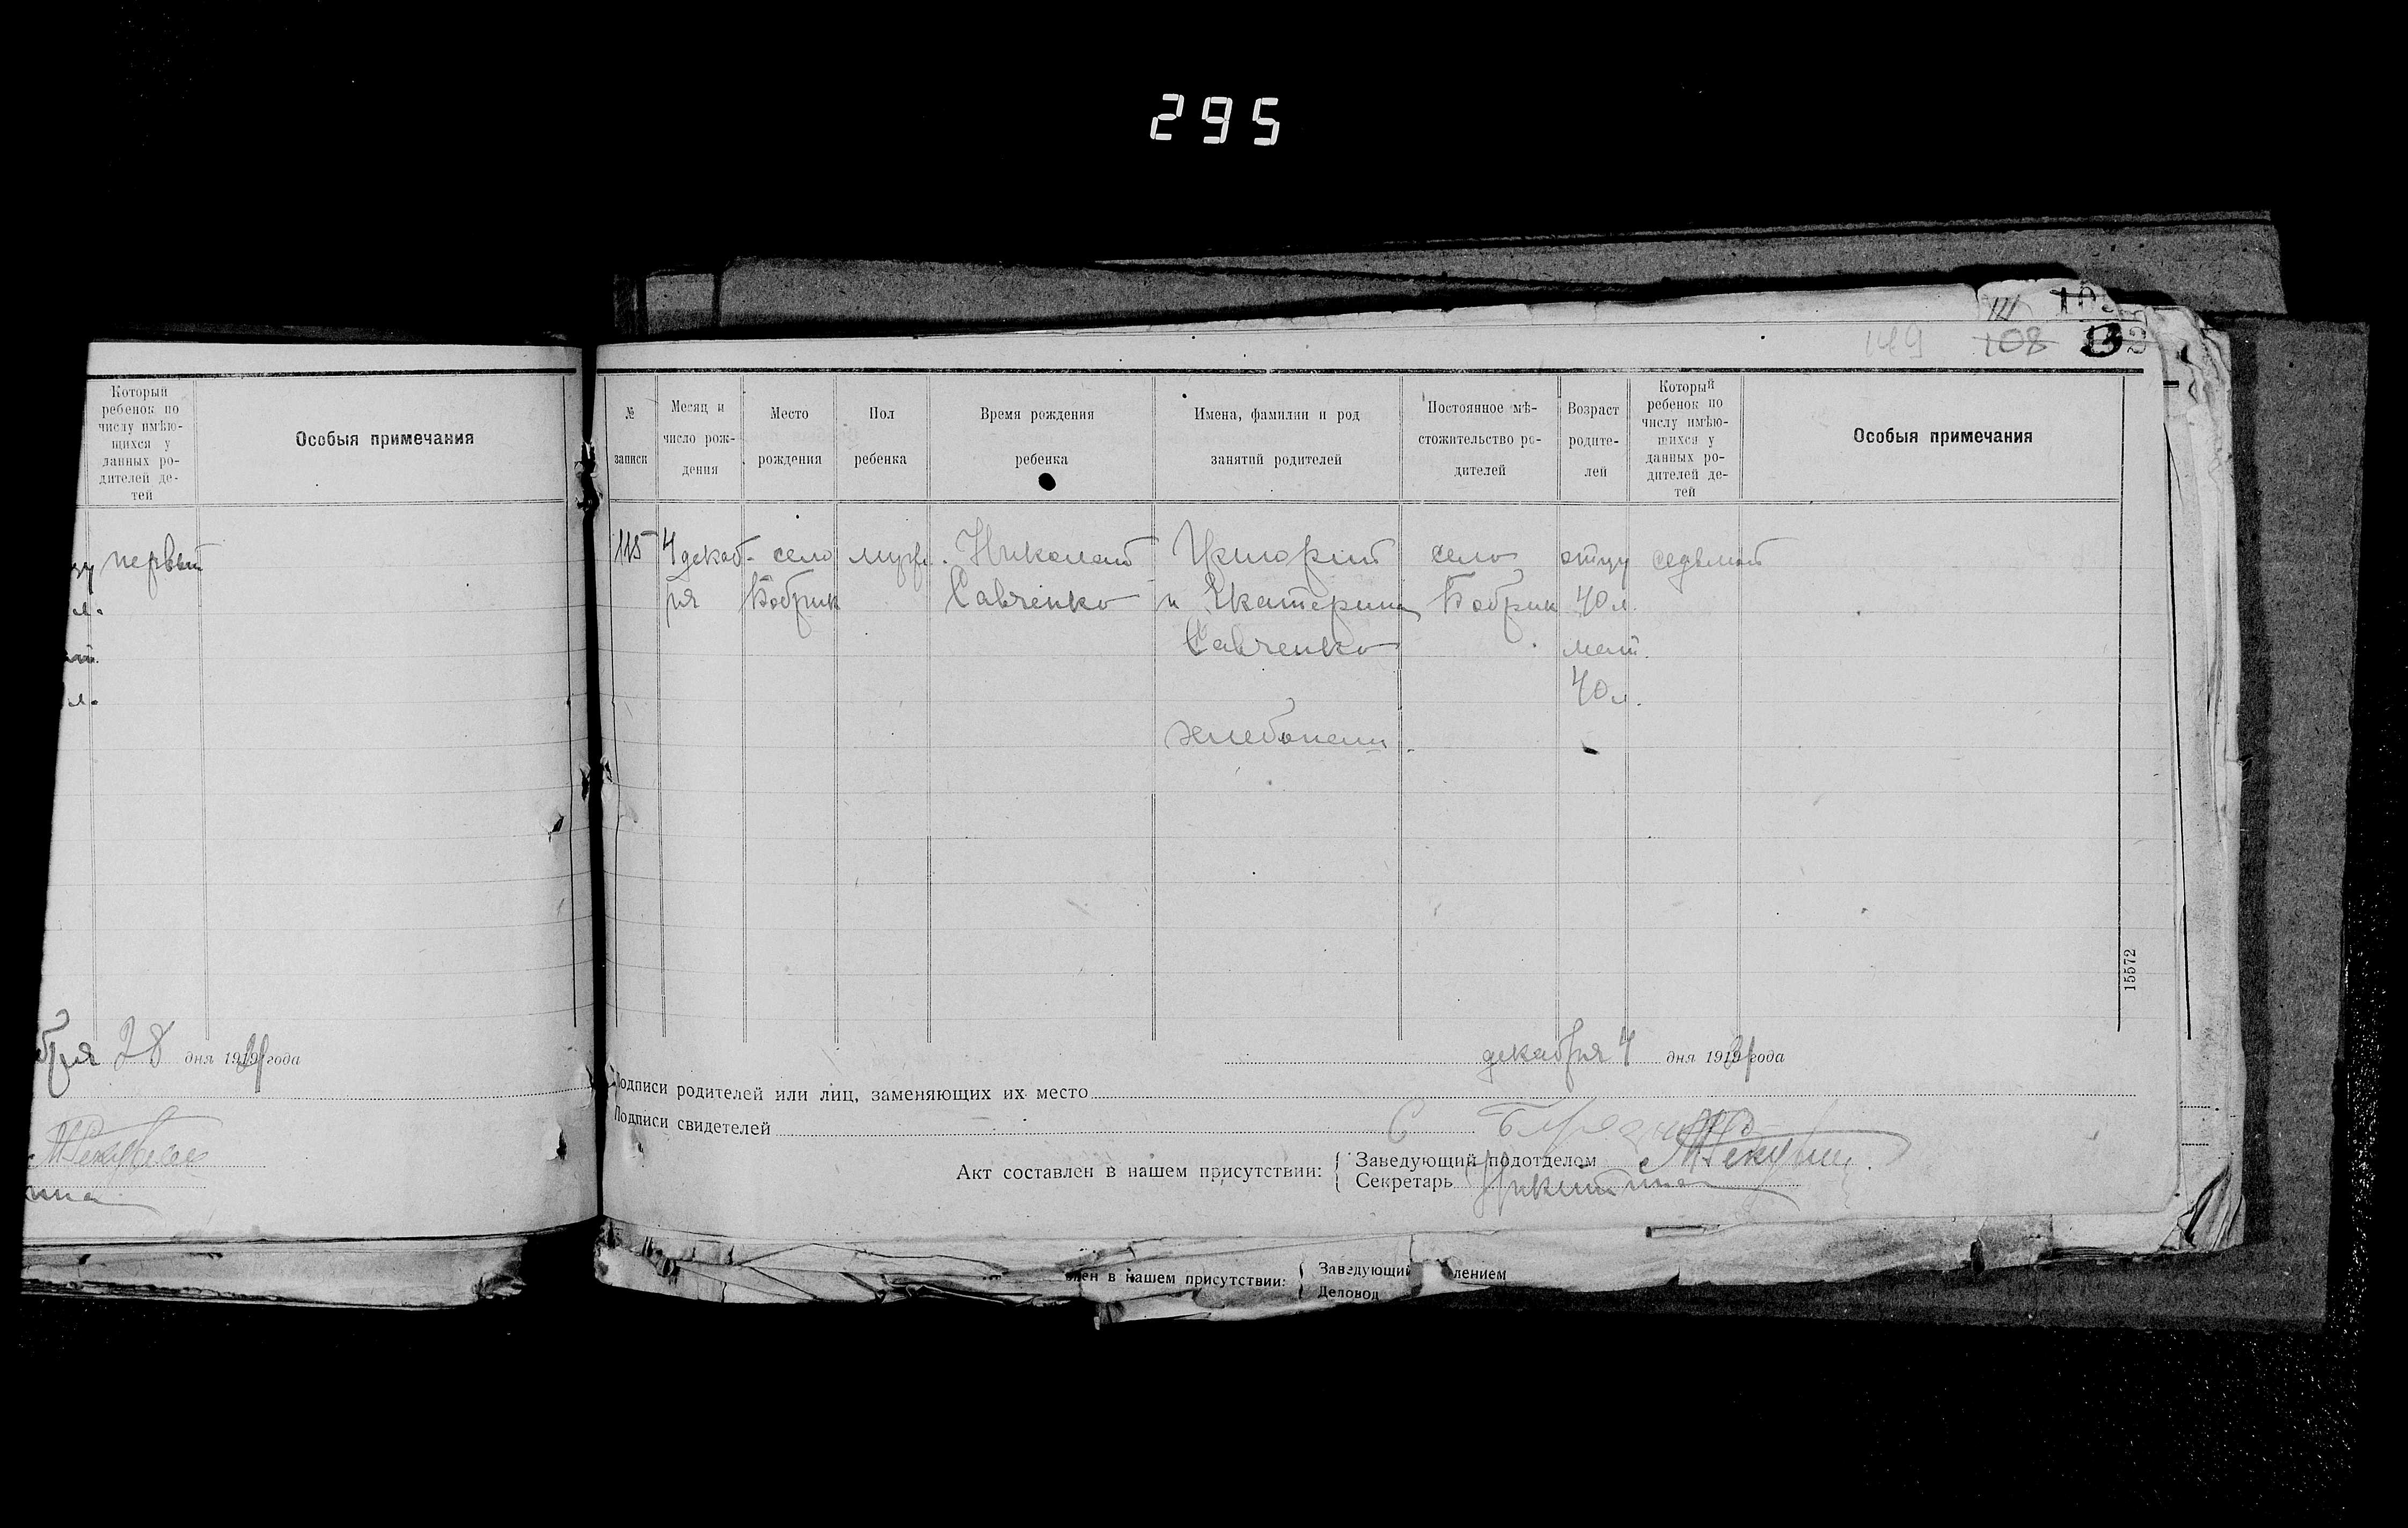 295
149 108
Который
ребенок по
числу имѣю-
щихся у
данных ро-
дителей де-
тей
Особыя примечания
первый
л.
л.
бря 28 дня 1919 года
№
записи
Месяц и
число рож-
дения
Место
рождения
Пол
ребенка
Время рождения
ребенка
Имена, фамилии и род
занятий родителей
Постоянное мѣ-
стожительство ро-
дителей
Возраст
родите-
лей
Который
ребенок по
числу имѣю-
щихся у
данных ро-
дителей де-
тей
Особыя примечания
115 4 декаб- село муж. Николай Григорий село отцу седьмой
ря Бобрик Савченко и Екатерина Бобрик 40 л.
Савченко мат.
40 л.
хлебопаш.
15572
декабря 4 дня 1919 года
Подписи родителей или лиц, заменяющих их место
Подписи свидетелей
Акт составлен в нашем присутствии:
Заведующий подотделом
Секретарь Никитина
влен в нашем присутствии:
Заведующий лением
Деловод